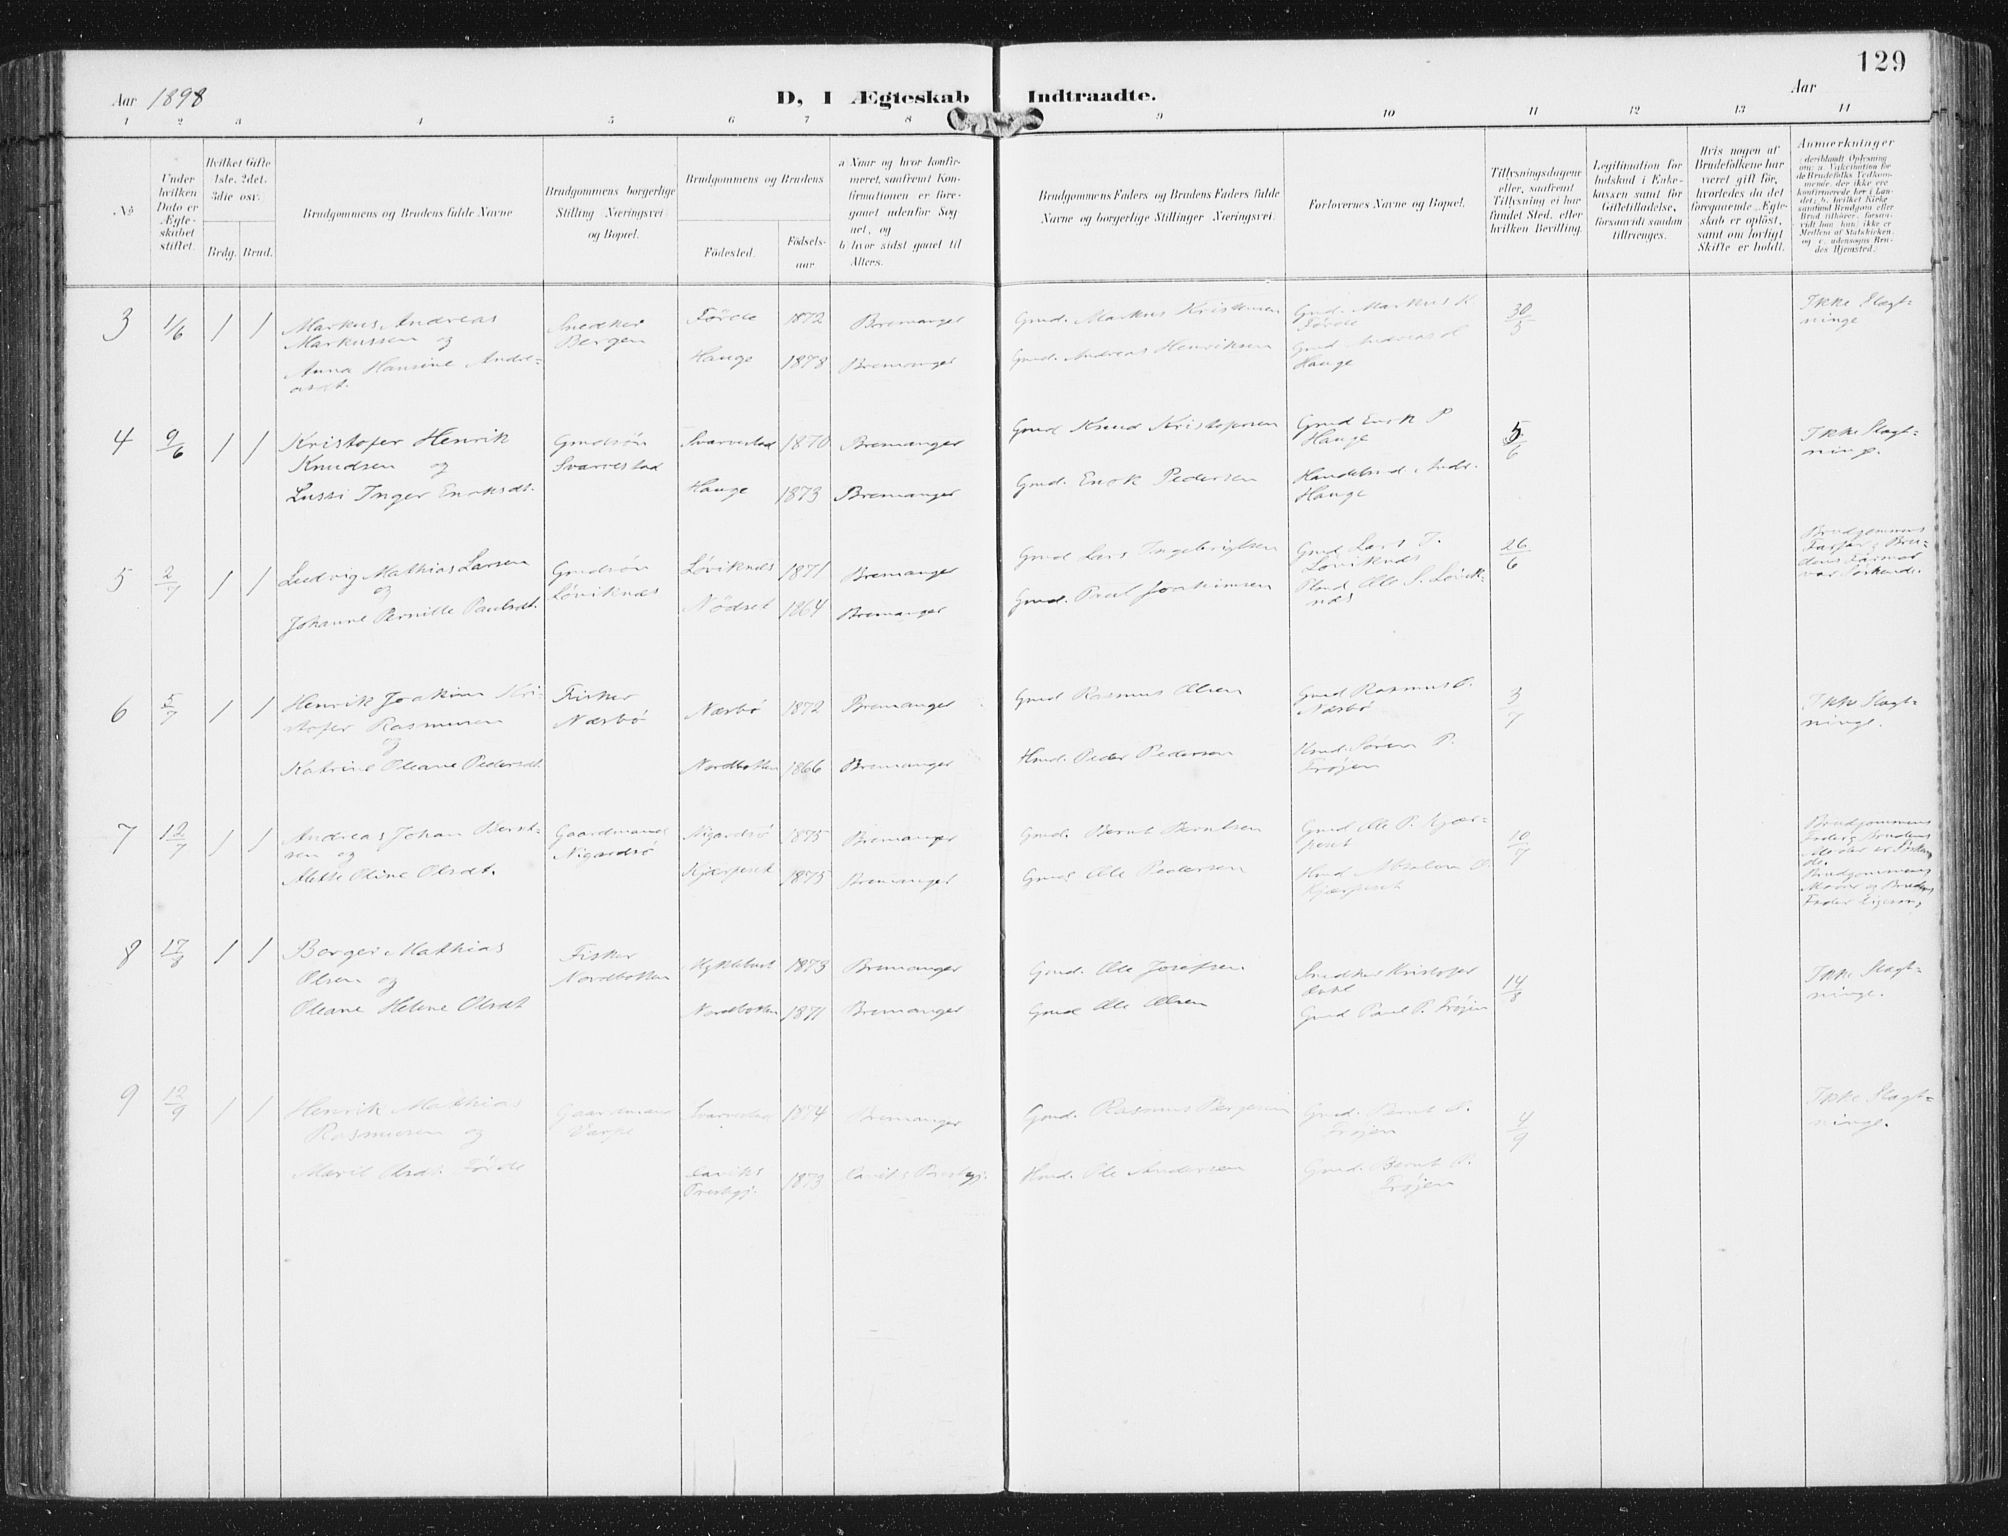 129
Aar 1898
D, I Ægteskab Indtraadte.
Aar
1 2 3 4 5 6 7 8 9 10 11 12 13 14
No
Under hvilken Dato er Ægteskabet stiftet.
Hvilket Gifte 1ste, 2det, 3die osv.
Brdg. Brud.
Brudgommens og Brudens fulde Navne
Brudgommens borgerlige Stilling Næringsvei og Bopæl.
Brudgommens og Brudens
Fødested. Fødselsaar
a Naar og hvor konfirmeret, saafremt Konfirmationen er foregaaet udenfor Sognet, og
b hvor sidst gaaet til Alters.
Brudgommens Faders og Brudens Faders fulde Navne og borgerlige Stillinger Næringsvei.
Forlovernes Navne og Bopæl.
Tillysningsdagene eller, saafremt Tillysning ei har fundet Sted, efter hvilken Bevilling.
Legitimation for Indskud i Enkekassen samt for Giftetilladelse, forsaavidt saadan tiltrænges.
Hvis nogen af Brudefolkene har været gift før, hvorledes da det foregaaende Ægteskab er opløst, samt om lovligt Skifte er holdt.
Anmærkninger
3 1/6 1 1 Markus Andreas Snedker Førde 1872 Bremanger Gmd. Markus Kristensen Gmd. Markus K. 30/5 Ikke Slægt-
Markussen og Bergen Førde ninge
Anna Hansine Andre- Hauge 1878 Bremanger Gmd. Andreas Henriksen Gmd Andreas H
asdt. Hauge
4 9/6 1 1 Kristofer Henrik Gmdsøn Svarvestad 1870 Bremanger Gmd Knud Kristofersen Gmd Enok P 5/6 Ikke Slægt-
Knudsen og Svarvestad Hauge ninge.
Lussi Inger Enoksdt. Hauge 1873 Bremanger Gmd. Enok Pedersen Handelsmd. Andr.
Hauge
5 2/7 1 1 Ludvig Mathias Larsen Gmdsøn Løviknæs 1871 Bremanger Gmd Lars Ingebrigtsen Gmd Lars I. 26/6 Brudgommens
og Løviknæs Løviknæs Farfar og Bru-
Johanne Pernille Paulsdt. Nødset 1864 Bremanger Gmd. Paul Joakimsen Ole S. Løvik- dens Farmor
næs var Søskende.
6 5/7 1 1 Henrik Joakim Kri- Fisker Næsbø 1872 Bremanger Gmd Rasmus Olsen Gmd Rasmus O. 3/7 Ikke Slægt-
stofer Rasmussen Næsbø Næsbø ninge.
og
Katrine Oleane Pedersdt. Nordbotten 1866 Bremanger Hmd. Peder Pedersen Søren P.
Frøjen
7 12/7 1 1 Andreas Johan Bernt- Gaardmand Nigardsø 1875 Bremanger Gmd. Bernt Berntsen Gmd Ole P. Kjær- 10/7 Brudgommens
sen og Nigardsø peset Fader og Brudens
Mette Oline Olsdt. Kjærpeset 1875 Bremanger Gmd Ole Pedersen Hmd Absalon O. Moder er Søsken-
Kjærpeset de.
Brudgommens
Moder og Brudens
Fader ligesaa
8 17/8 1 1 Berger Mathias Fisker Myklebust 1873 Bremanger Gmd. Ole Josefsen Snedker Kristofer 14/8 Ikke Slægt-
Olsen og Nordbotten ninge.
Oleane Helene Olsdt Nordbotten 1871 Bremanger Gmd Ole Olsen Gmd Paul P. Frøjen
9 12/9 1 1 Henrik Mathias Gaardmand Svarvestad 1874 Bremanger Gmd. Rasmus Bergesen Gmd. Bernt P. 4/9 Ikke Slægt-
Rasmussen og Varpe Frøjen ninge.
Marit Olsdt. Førde Laviks 1873 Laviks Præstegj. Hmd. Ole Andersen Gmd. Bernt P.
Præstegj. Frøjen